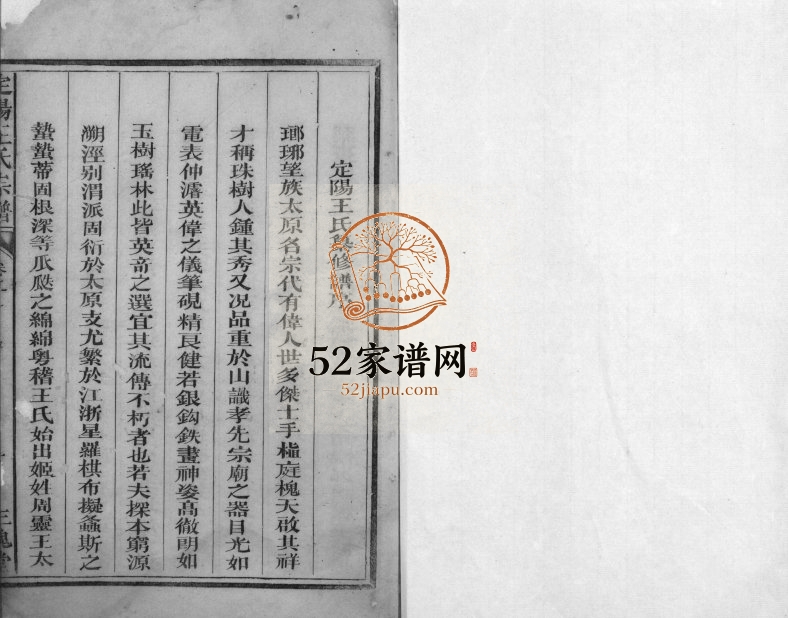 定陽王氏
修譜序
瑯琊望族太原名宗代有偉人世多傑士手植庭槐天啟其祥
才稱珠樹人鍾其秀又况品重於山識孝先宗廟之器目光如
電表仲濬英偉之儀筆硯精良健若銀鈎鉄畫神姿高徹明如
玉樹瑤林此皆英奇之選宜其流傳不朽者也若夫探本窮源
溯涇别渭派周衍於太原支尤繁於江浙星羅棋布擬螽斯之
蟄蟄蒂固根深等瓜瓞之綿綿粵稽王氏始出姬姓周靈王太
定陽王氏宗譜
三槐堂
52家谱网
52jiapu.com